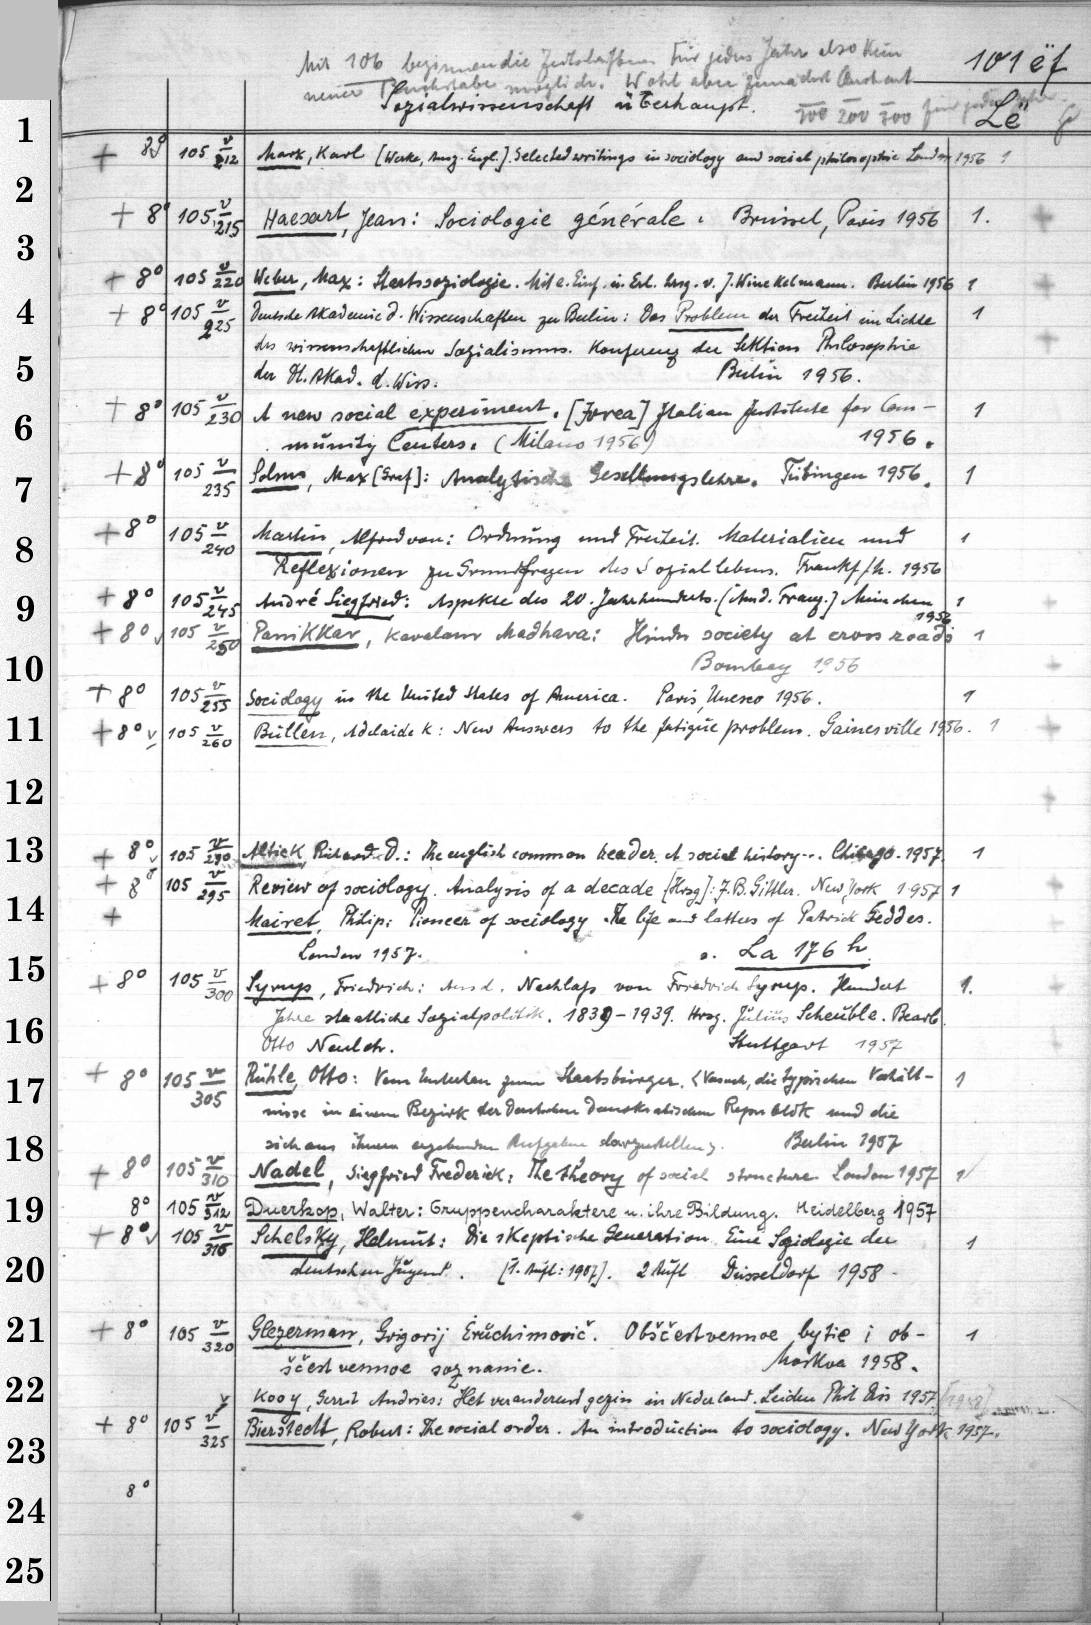 Mit 106 beginnen die Zeitschriften für jedes Jahr also kein
101 ëf
neuer Buchstabe möglich. Wohl aber
Sozialwissenschaft überhaupt.
700 200 700 für jedes
Lë
1
+ 8° 105 v/212 Marx, Karl [Werke, Ausz. Engl.]. Selected writings in sociology and social philosophie London 1956 1
2
+ 8° 105 v/215 Haesaert, Jean: Sociologie générale. Brüssel, Paris 1956 1.
3
+ 8° 105 v/220 Weber, Max: Staatssoziologie. Mit e. Einf. u. Erl. hrsg. v. J. Winckelmann. Berlin 1956 1
4
+ 8° 105 v/225 Deutsche Akademie d. Wissenschaften zu Berlin: Das Problem der Freiheit im Lichte 1
des wissenschaftlichen Sozialismus. Konferenz der Sektion Philosophie
5
der Dt. Akad. d. Wiss. Berlin 1956.
+ 8° 105 v/230 A new social experiment. [Ivrea] Italian Institute for Com- 1
6
munity Centers. (Milano 1956) 1956.
+ 8° 105 v/235 Solms, Max [Graf]: Analytische Gesellungslehre. Tübingen 1956. 1
7
+ 8° 105 v/240 Martin, Alfred von: Ordnung und Freiheit. Materialien und 1
8
Reflexionen zu Grundfragen des Soziallebens. Frankf/M. 1956
+ 8° 105 v/245 André Siegfried: Aspekte des 20. Jahrhunderts. (Ausd. Franz.) München 1
9
1956
+ 8° 105 v/250 Panikkar, Kavalam Madhava: Hindu society at cross roads 1
10
Bombay 1956
+ 8° 105 v/255 Sociology in the United States of America. Paris, Unesco 1956. 1
11
+ 8° v 105 v/260 Bullen, Adelaide K: New Answers to the fatigue problem. Gainesville 1956. 1
12
13
+ 8° 105 v/290 Altick, Richard D.: The english common reader. A social history... Chicago. 1957. 1
+ 8° 105 v/295 Review of sociology. Analysis of a decade [Hrsg]: J.B. Gittler. New York 1957 1
14
+ Mairet, Philip: Pioneer of sociology. The life and letters of Patrick Geddes.
London 1957. s. La 176 h
15
+ 8° 105 v/300 Syrup, Friedrich: Aus d. Nachlaß von Friedrich Syrup. Hundert 1.
Jahre staatliche Sozialpolitik. 1839-1939. Hrsg. Julius Scheuble. Bearb.
16
Otto Neuloh. Stuttgart 1957
+ 8° 105 v/305 Rühle, Otto: Vom Untertan zum Staatsbürger. <Versuch, die typischen Verhält- 1
17
nisse in einem Bezirk der Deutschen Demokratischen Republik und die
18
sich aus ihnen ergebenden Aufgaben darzustellen>. Berlin 1957
+ 8° 105 v/310 Nadel, Siegfried Frederick: The theory of social structure London 1957 1
19
8° 105 v/312 Duerkop, Walter: Gruppencharaktere u. ihre Bildung. Heidelberg 1957
+ 8° v 105 v/315 Schelsky, Helmut: Die skeptische Generation. Eine Soziologie der 1
20
deutschen Jugend. [1. Aufl: 1957]. 2 Aufl Düsseldorf 1958
21
+ 8° 105 v/320 Glezerman, Grigorij Eruchimovič. Obščestvennoe bytie i ob- 1
ščestvennoe soznanie. Moskva 1958.
22
Kooy, Gerrit Andries: Het veranderend gezin in Nederland. Leiden Phil Diss 1957 [1958]
+ 8° 105 v/325 Bierstedt, Robert: The social order. An introduction to sociology. New York 1957.
23
8°
24
25